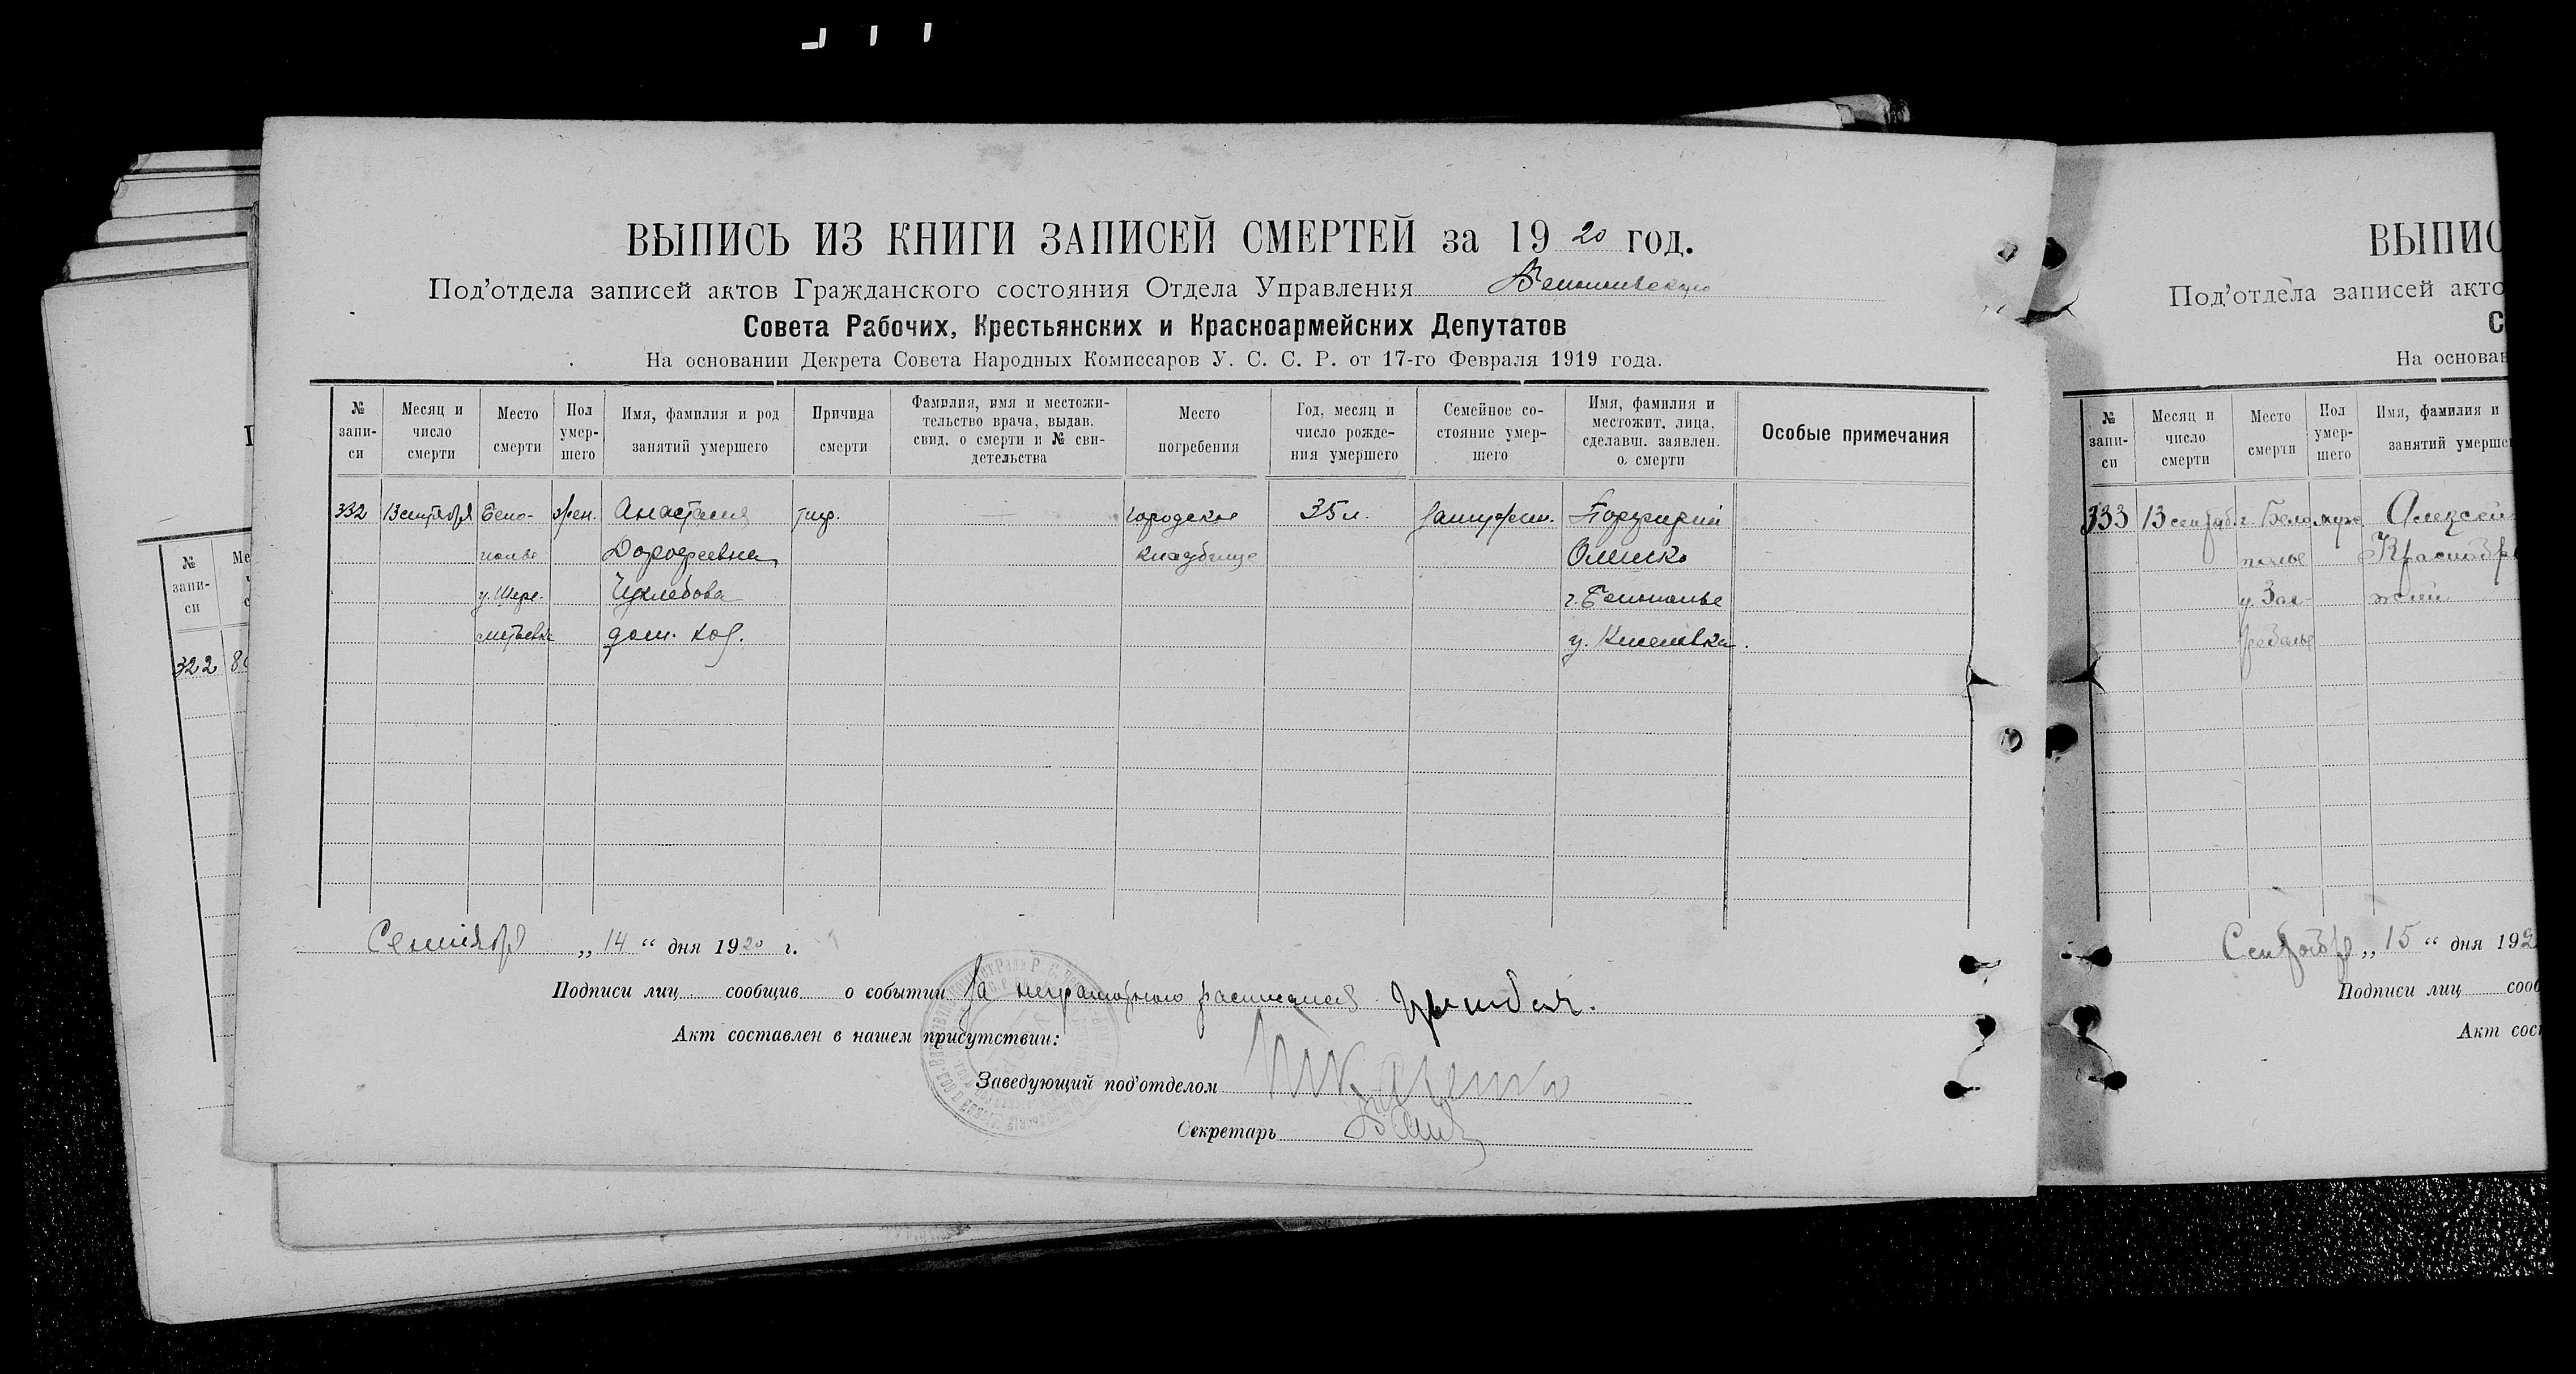 ВЫПИСЬ ИЗ КНИГИ ЗАПИСЕЙ СМЕРТЕЙ за 1920 год.
Под'отдела записей актов Гражданского состояния Отдела Управления
Совета Рабочих, Крестьянских и Красноармейских Депутатов
На основании Декрета Совета Народных Комиссаров У. С. С. Р. от 17-го Февраля 1919 года.
№ запи-си
Месяц и число смерти
Место смерти
Пол умер-шего
Имя, фамилия и род занятий умершего
Причина смерти
Фамилия, имя и местожи-тельство врача, выдав. свид. о смерти и № сви-детельства
Место погребения
Год, месяц и число рожде-ния умершего
Семейное со-стояние умер-шего
Имя, фамилия и местожит. лица, сделавш. заявлен. о смерти
Особые примечания
332 13 сентября Бело- жен. Анастасия тиф. — городское 35 л. замужем. Порфирий
полье Дорофеевна кладбище Олийко
у. Шере- г. Белополье
метьевка дом. хоз.
Сентября „14“ дня 1920 г.
Подписи лиц сообщив о событии За неграмотного расписался
Акт составлен в нашем присутствии:
Заведующий под'отделом
Секретарь
№ запи-си
322
ВЫПИС
Под'отдела записей акто
С
На основан
№ запи-си
Месяц и число смерти
Место смерти
Пол умер-шего
Имя, фамилия и
занятий умерше
333 13 сентяб. г. Бело муж Алексей
полье
у. За-
Сентября „15“ дня 192
Подписи лиц сооб
Акт сост